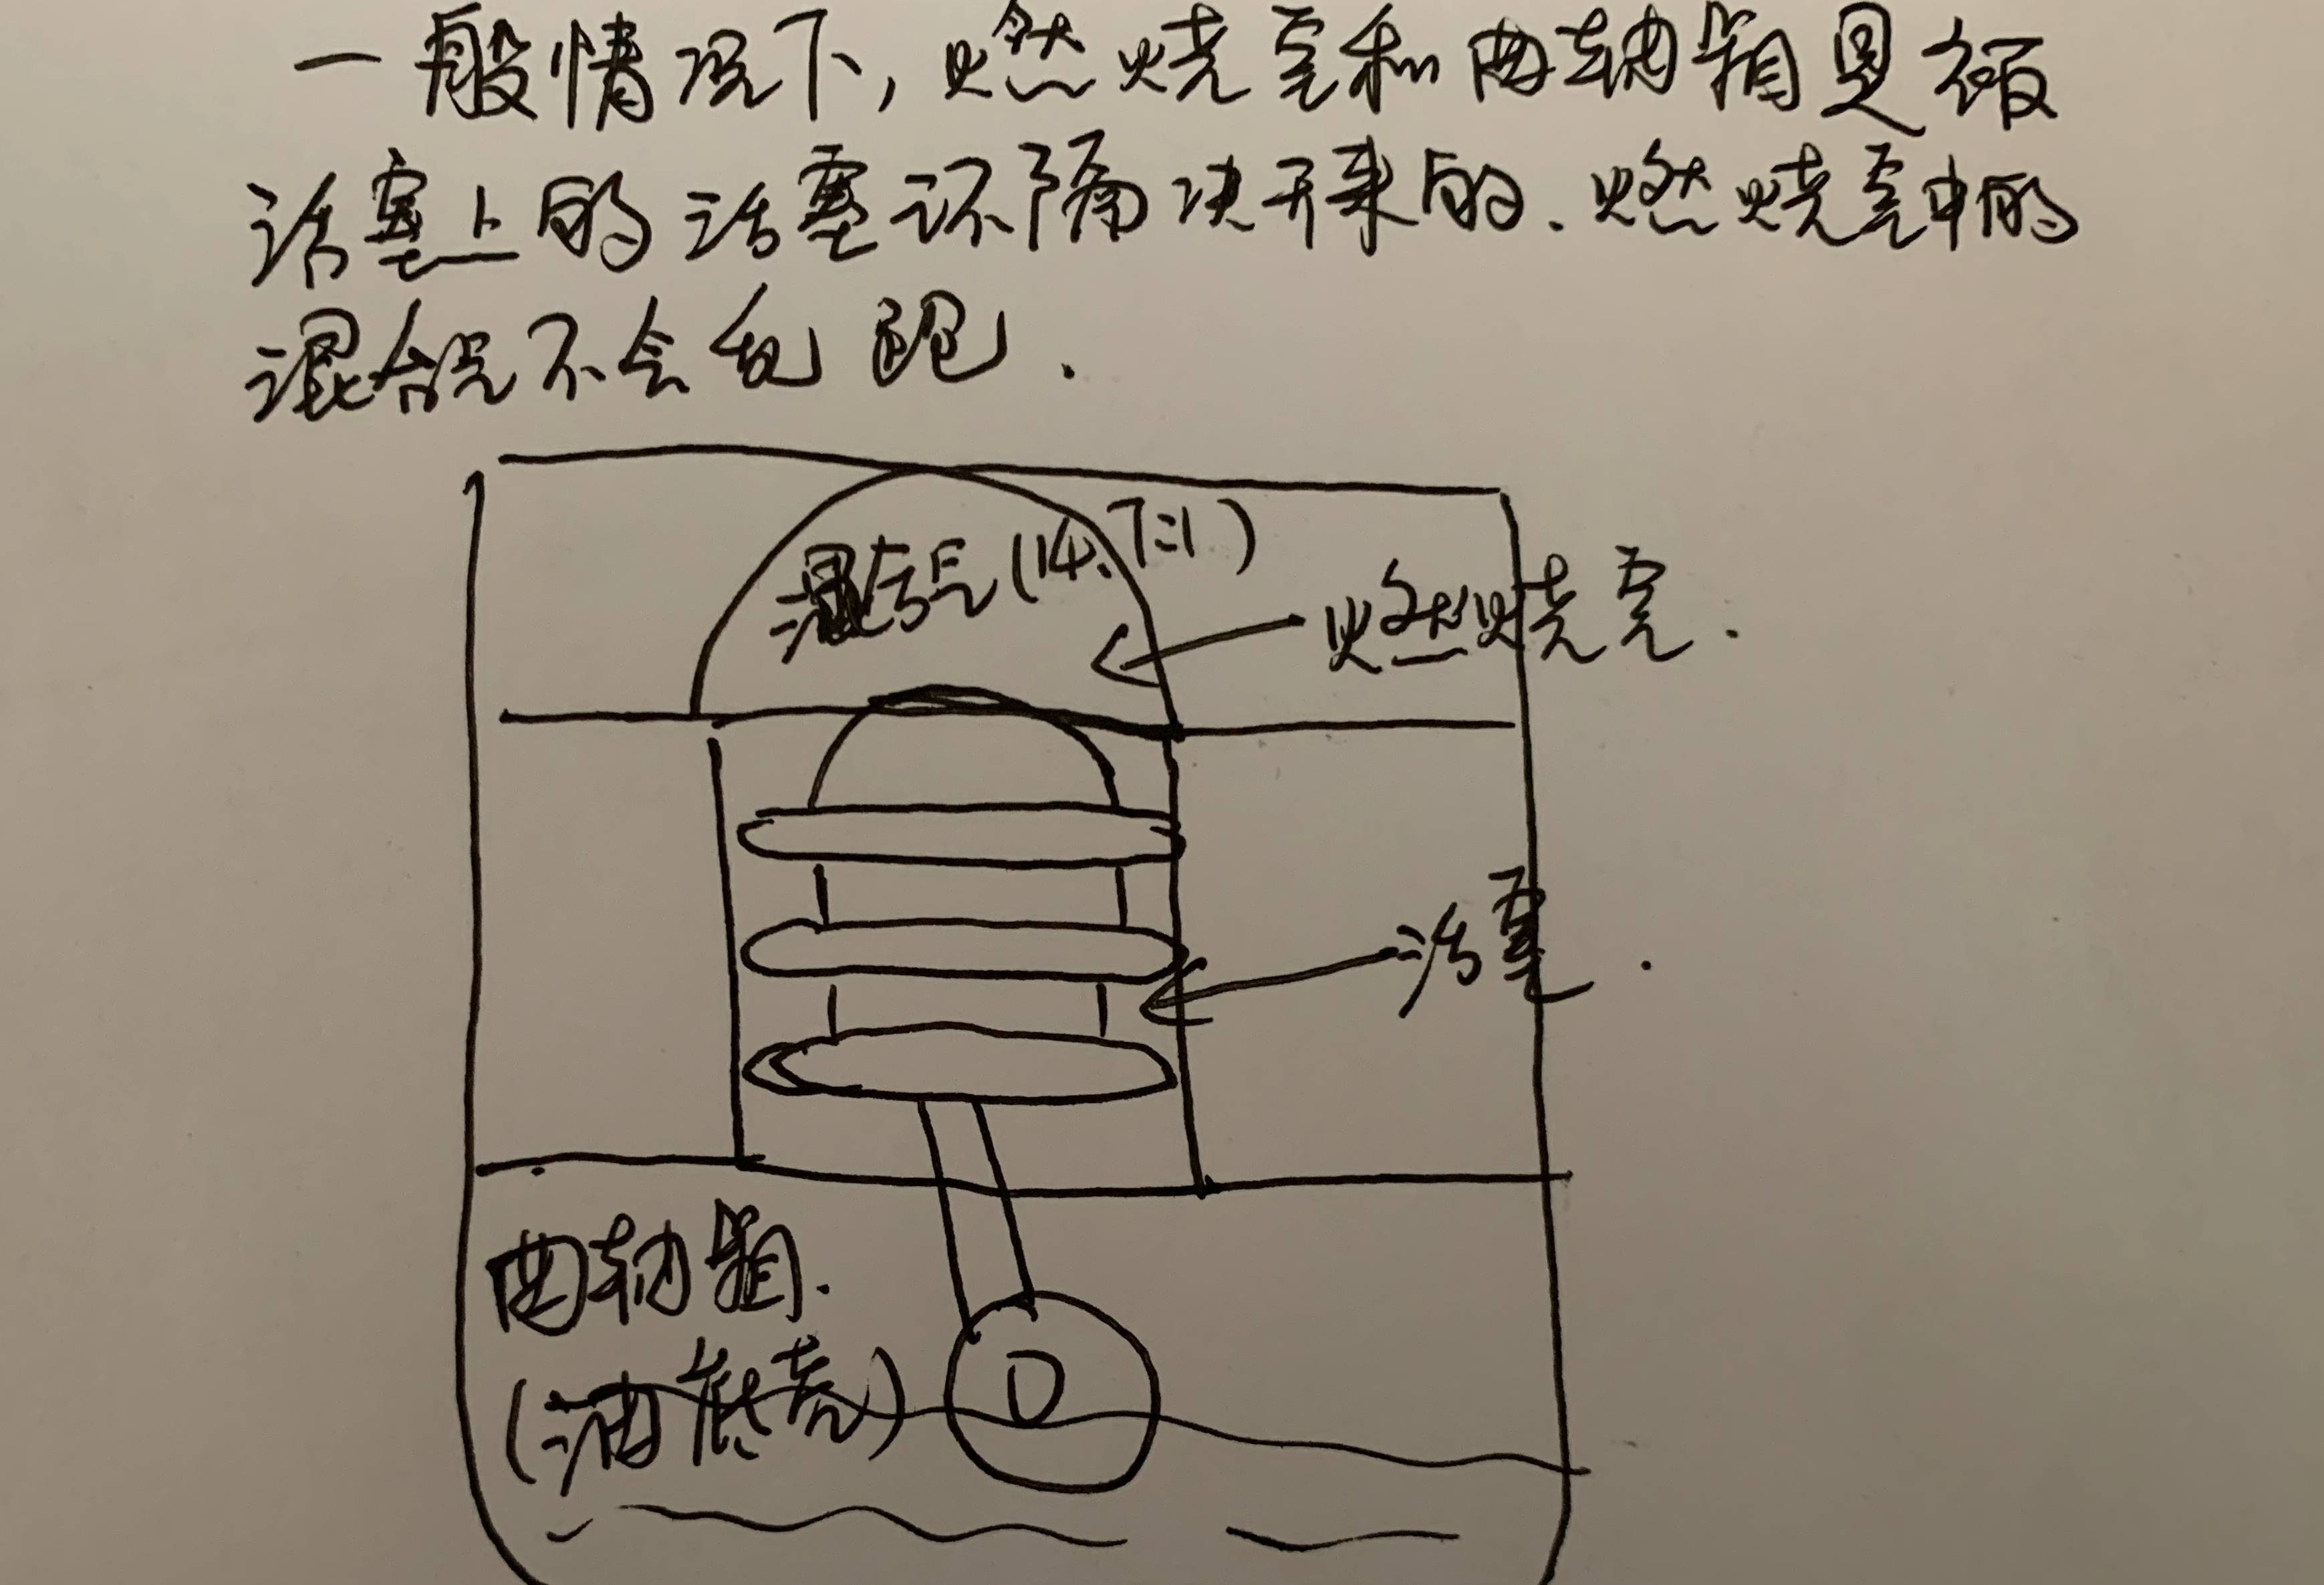 一般情况下，燃烧室和曲轴箱是被
活塞上的活塞环隔决开来的．燃烧室中的
混合气不会乱跑．
混合气(14.7:1)
燃烧室．
活塞．
曲轴箱．
(油底壳)